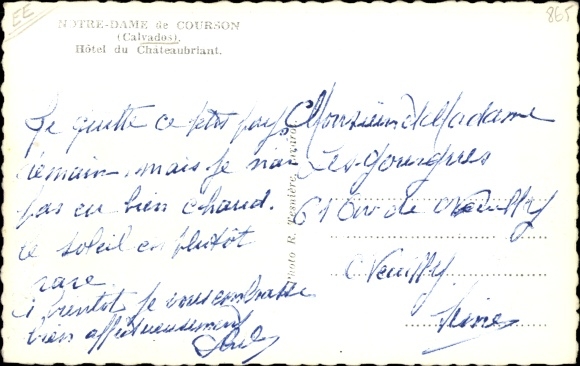 EE
865
NOTRE-DAME de COURSON
(Calvados).
Hôtel du Châteaubriant.
Je quitte ce petit pays
demain, mais je n'ai
pas eu bien chaud.
le soleil est plutôt
rare
à bientôt je vous embrasse
bien affectueusement
Photo R. Tesnière,
Monsieur et Madame
61 av de Neuilly
Neuilly
Seine